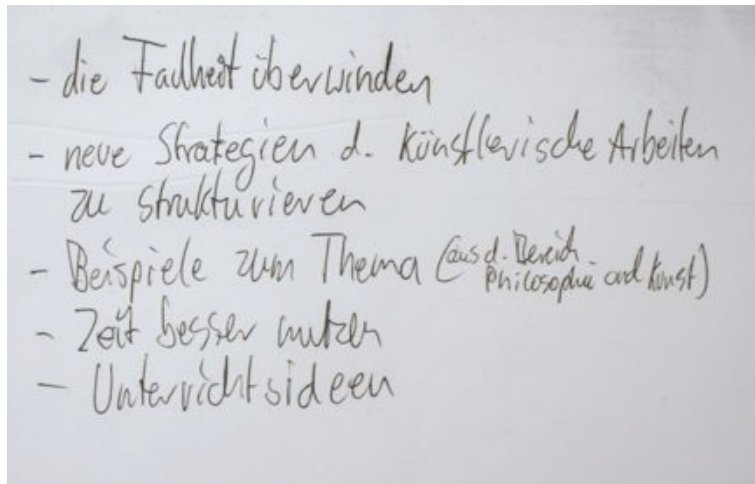 - die Fadheit überwinden
- neue Strategien d. künstlerische Arbeiten
zu strukturieren
- Beispiele zum Thema (aus d. Bereich
Philosophie und Kunst)
- Zeit besser nutzen
- Unterrichtsideen